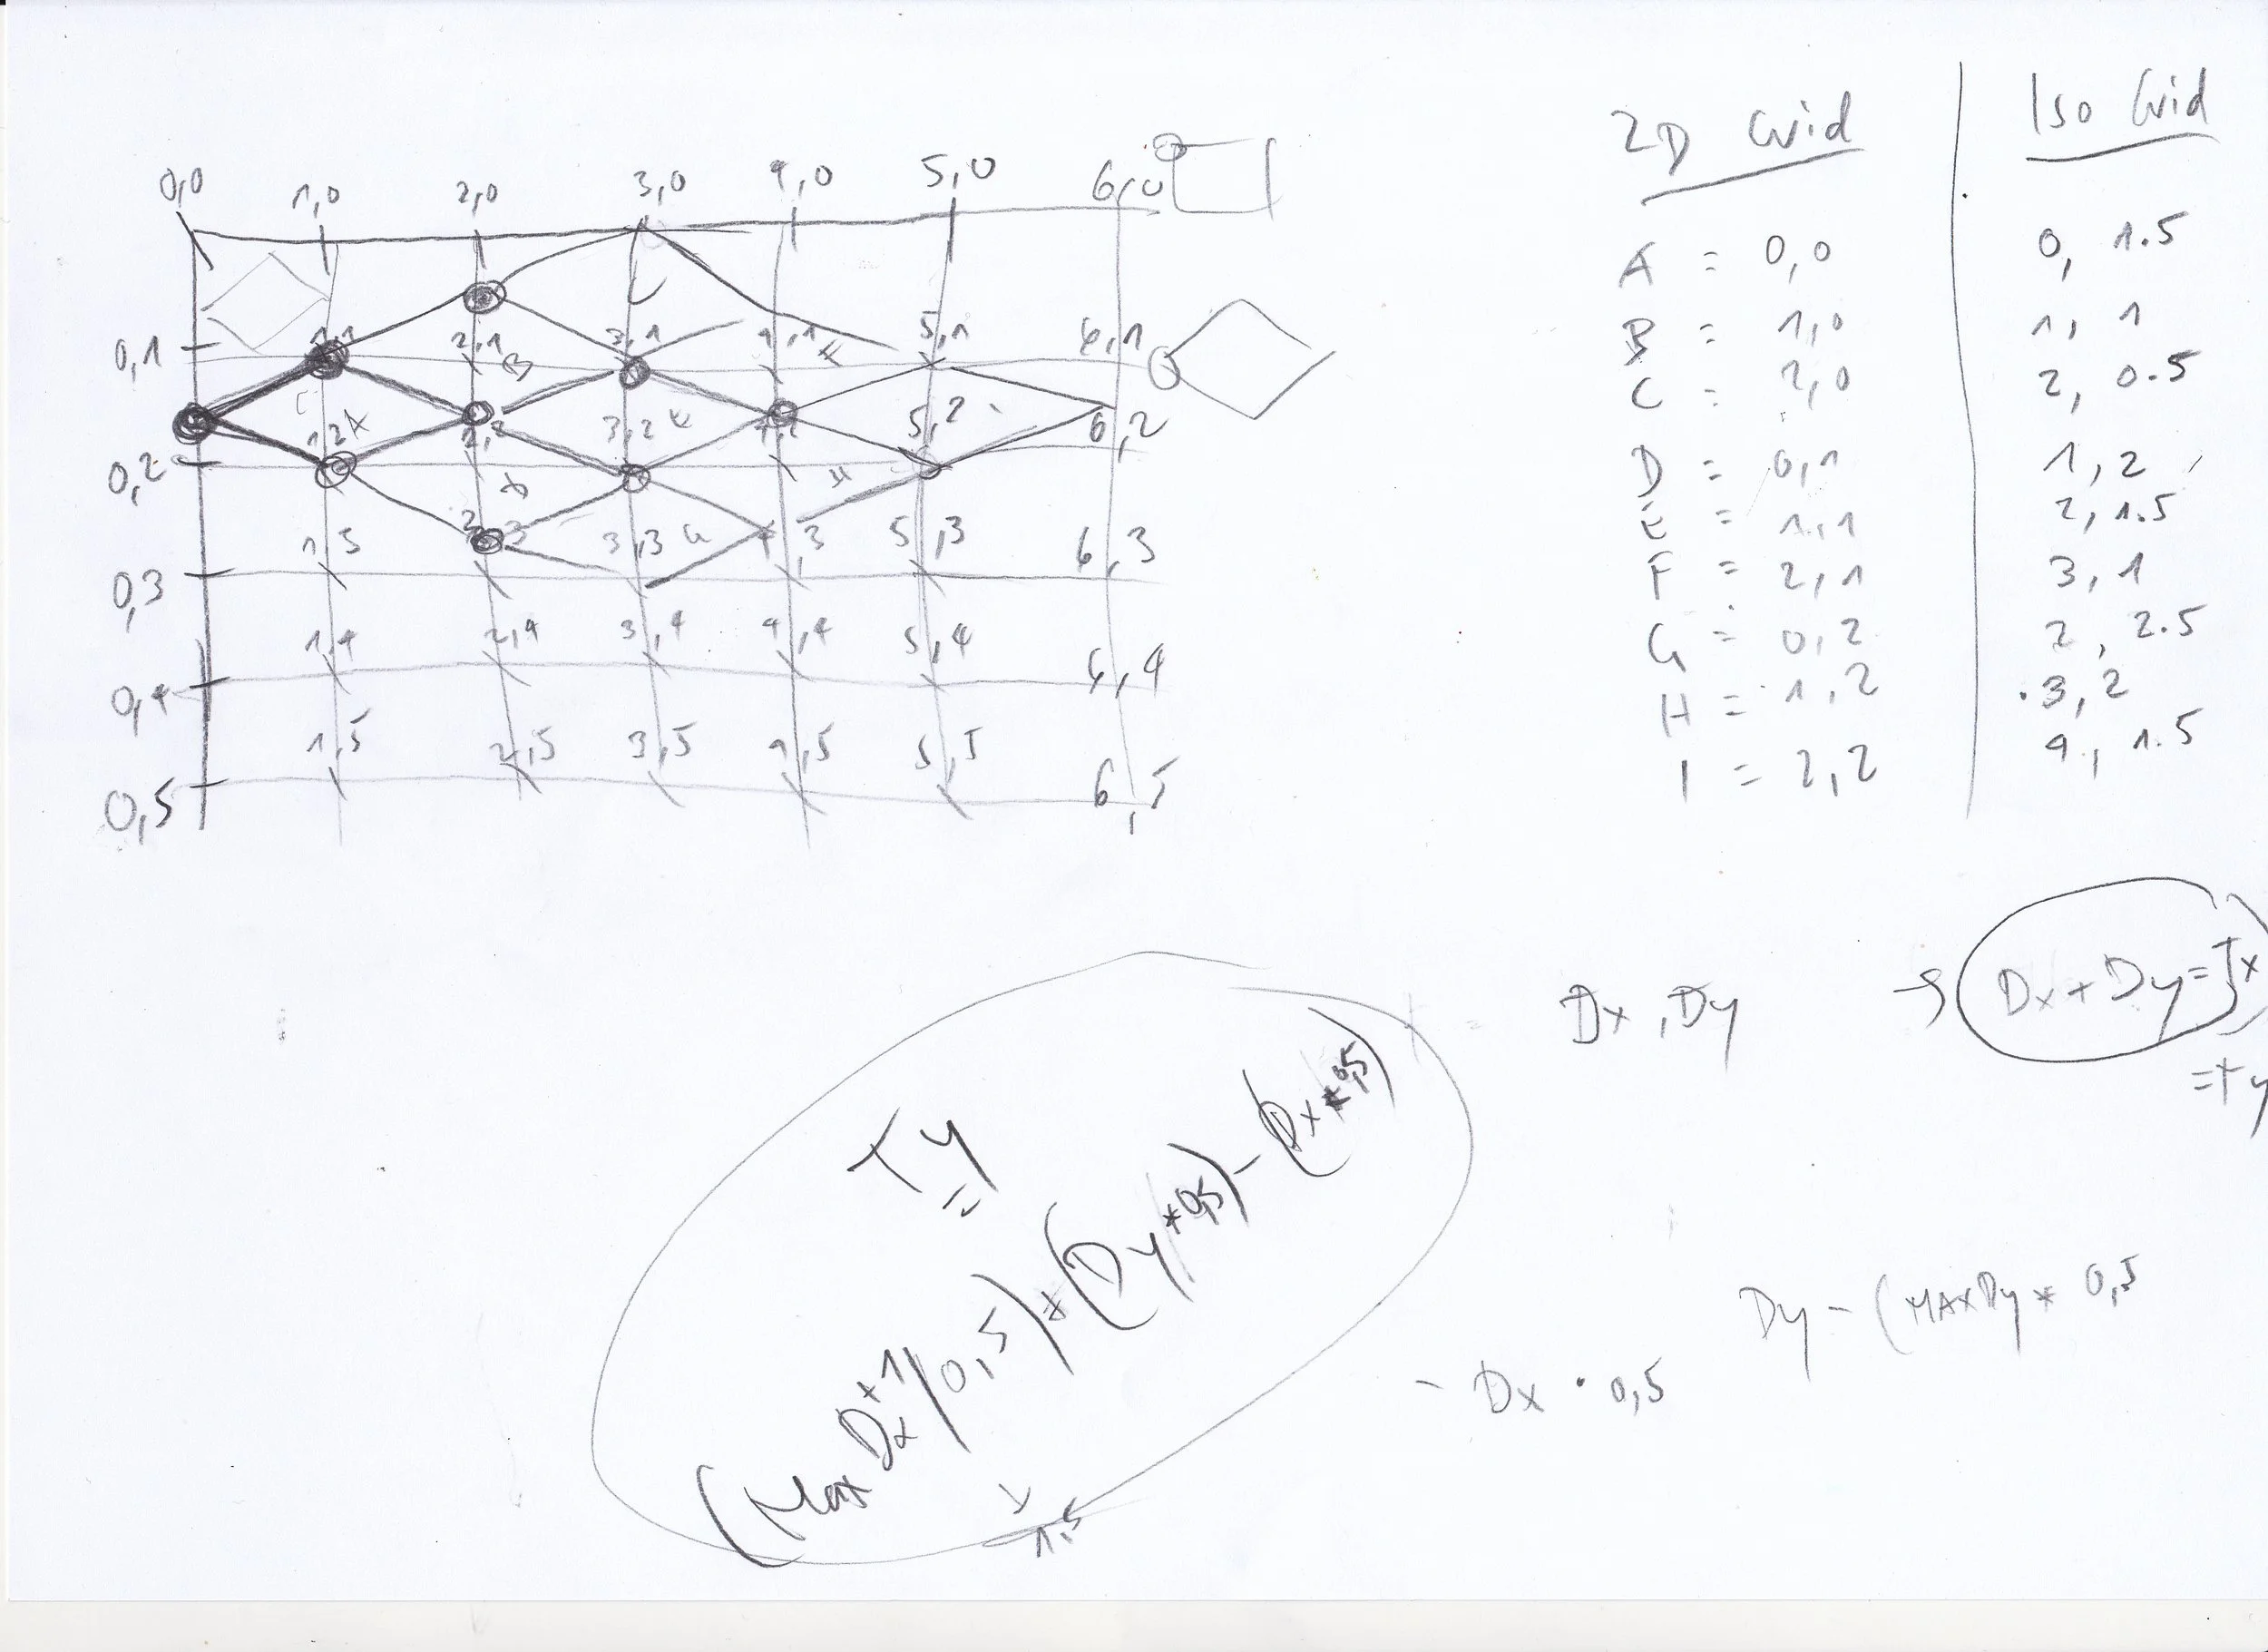 0,0 1,0 2,0 3,0 4,0 5,0 6,0
0,1 1,1 2,1 3,1 4,1 5,1 6,1
B F
C A E
0,2 1,2 2,2 3,2 4,2 5,2 6,2
D H
0,3 1,3 2,3 3,3 G 4,3 5,3 6,3
0,4 1,4 2,4 3,4 4,4 5,4 6,4
0,5 1,5 2,5 3,5 4,5 5,5 6,5
2D Grid Iso Grid
A = 0,0 0, 1.5
B = 1,0 1, 1
C = 2,0 2, 0.5
D = 0,1 1, 2
E = 1,1 2, 1.5
F = 2,1 3, 1
G = 0,2 2, 2.5
H = 1,2 3, 2
I = 2,2 4, 1.5
Dx, Dy → Dx + Dy = Tx
= Ty
Ty =
(Max Dx +1 / 0,5) + (Dy * 0,5) - (Dx * 0,5)
1,5
Dy - (MAXDy * 0,5
- Dx · 0,5